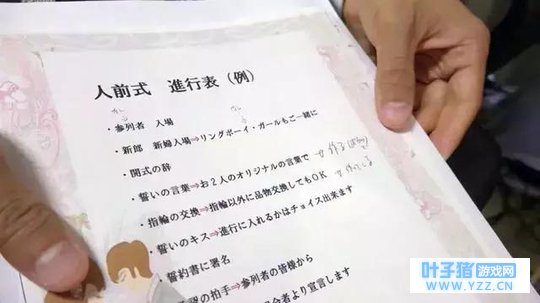 人前式 進行表（例）
・参列者 入場
・新郎 新婦入場⇒リングボーイ・ガールもご一緒に
・開式の辞
・誓いの言葉⇒お２人のオリジナルの言葉で
・指輪の交換⇒指輪以外に品物交換してもＯＫ
・誓いのキス⇒進行に入れるかはチョイス出来ます
誓約書に署名
の拍手⇒参列者の皆様から
会者より宣言します
叶子猪游戏网
WWW.YZZ.CN